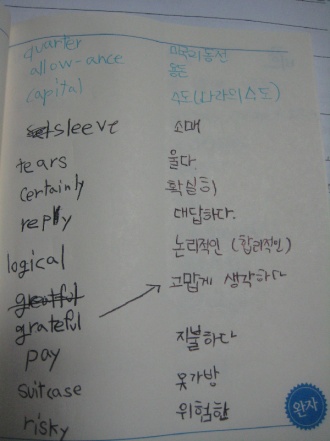 quarter
allow-ance 용돈
capital 수도(나라의 수도)
sleeve 소매
tears 울다.
certainly 확실히
reply 대답하다.
logical 논리적인 (합리적인)
grateful
grateful 고맙게 생각하다
pay 지불하다
suitcase 옷가방
risky 위험한
완자